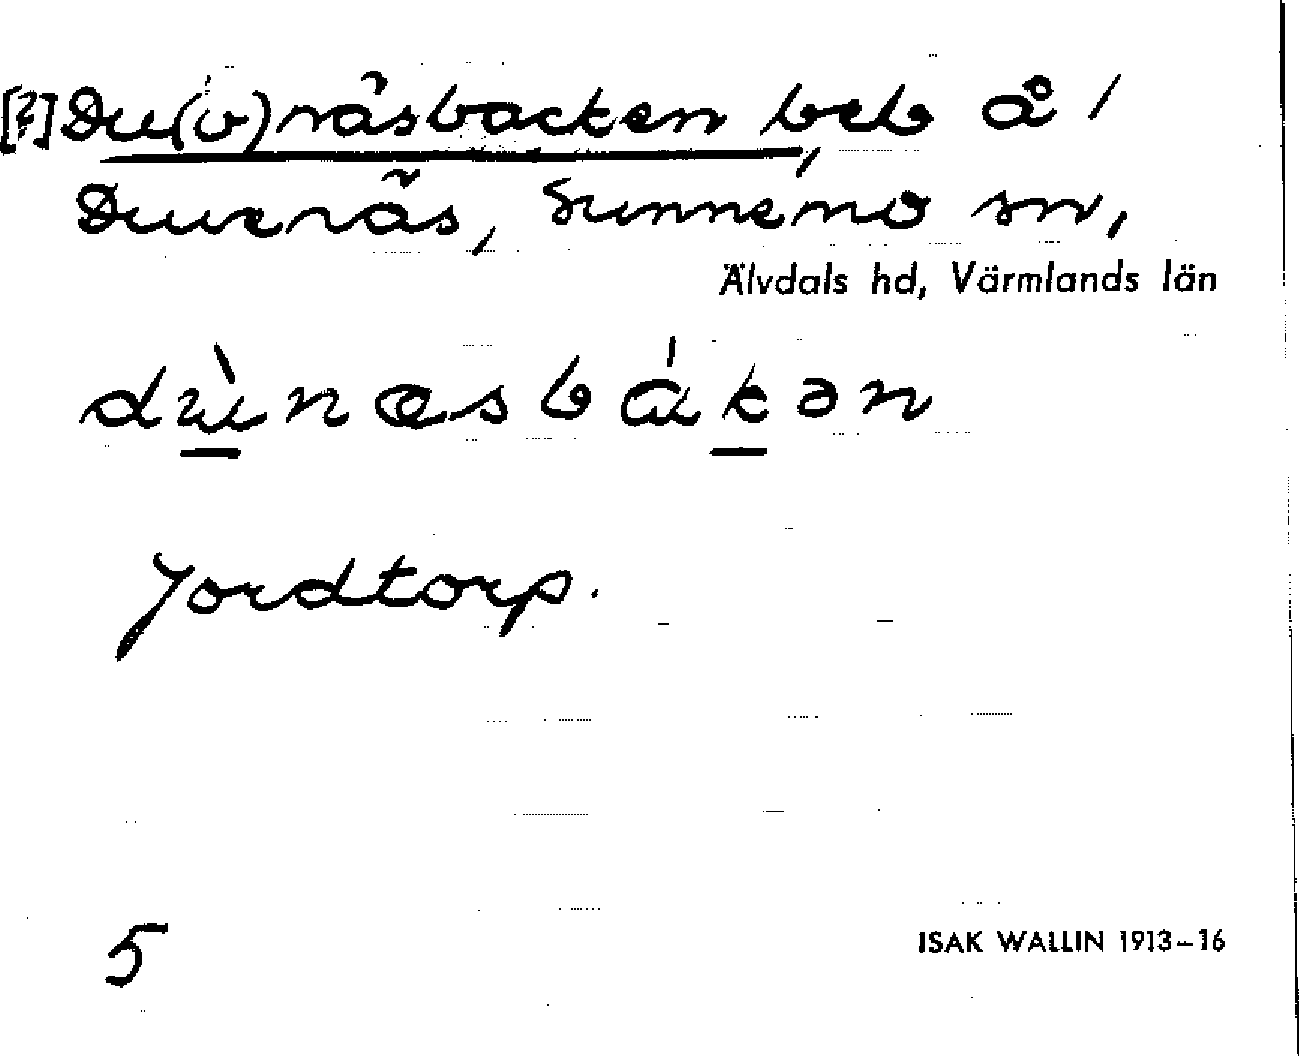 [?] Du(v)näsbacken beb å /
Duvenäs, Sunnemo sn,
Älvdals hd, Värmlands län
dùnæsbákən
Jordtorp.
5
ISAK WALLIN 1913–16